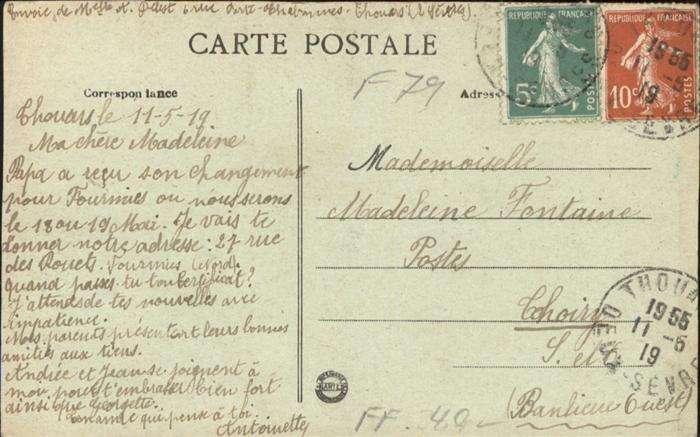 Envoie de Melle A. Petit 6 rue Porte-Chabannes Thouars (2 Sèvres).
CARTE POSTALE
Correspondance
Adresse
F 79
REPUBLIQUE FRANÇAISE
5c
POSTES
REPUBLIQUE FRANÇAISE
10c
POSTES
19 55
11 -5
19
Thouars le 11-5-19
Ma chère Madeleine
Papa a reçu son changement
pour Fourmies où nous serons
le 18 ou 19 Mai. Je vais te
donner notre adresse: 27 rue
des Rouets. Fourmies (Nord).
Quand passes tu ton Certificat?
J'attends de tes nouvelles avec
impatience.
Mes parents présentent leurs bonnes
amitiés aux tiens.
Andrée et Jeanne se joignent à
moi pour t'embrasser bien fort
ainsi que Georgette.
Ton amie qui pense à toi.
Antoinette
Mademoiselle
Madeleine Fontaine
Postes
Choisy
S. et
(Banlieue Ouest)
THOUARS
19 55
11 -5
19
DEUX-SEVRES
FF. 40-